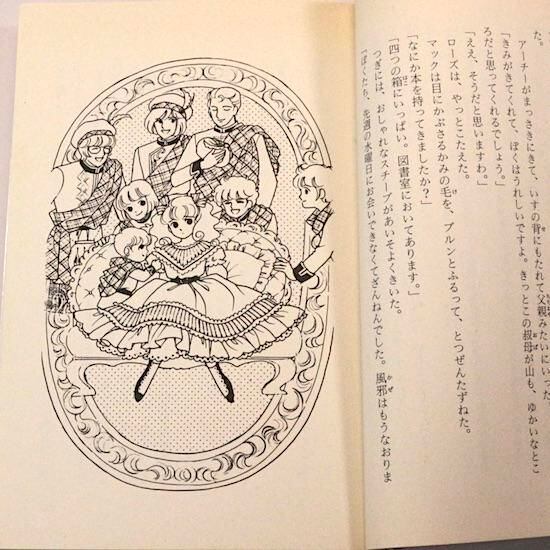 た。
アーチーがまっさきにきて、いすの背にもたれて父親みたいにいった
「きみがきてくれて、ぼくはうれしいですよ。きっとこの叔母が山も、ゆかいなとこ
ろだと思ってくれるでしょう。」
「ええ、そうだと思いますわ。」
ローズは、やっとこたえた。
マックは目にかぶさるかみの毛を、ブルンとふるって、とつぜんたずねた。
「なにか本を持ってきましたか？」
「四つの箱にいっぱい。図書室においてあります。」
つぎには、おしゃれなスチーブがあいそよくきいた。
「ぼくたち、先週の水曜日にお会いできなくてざんねんでした。風邪はもうなおりま